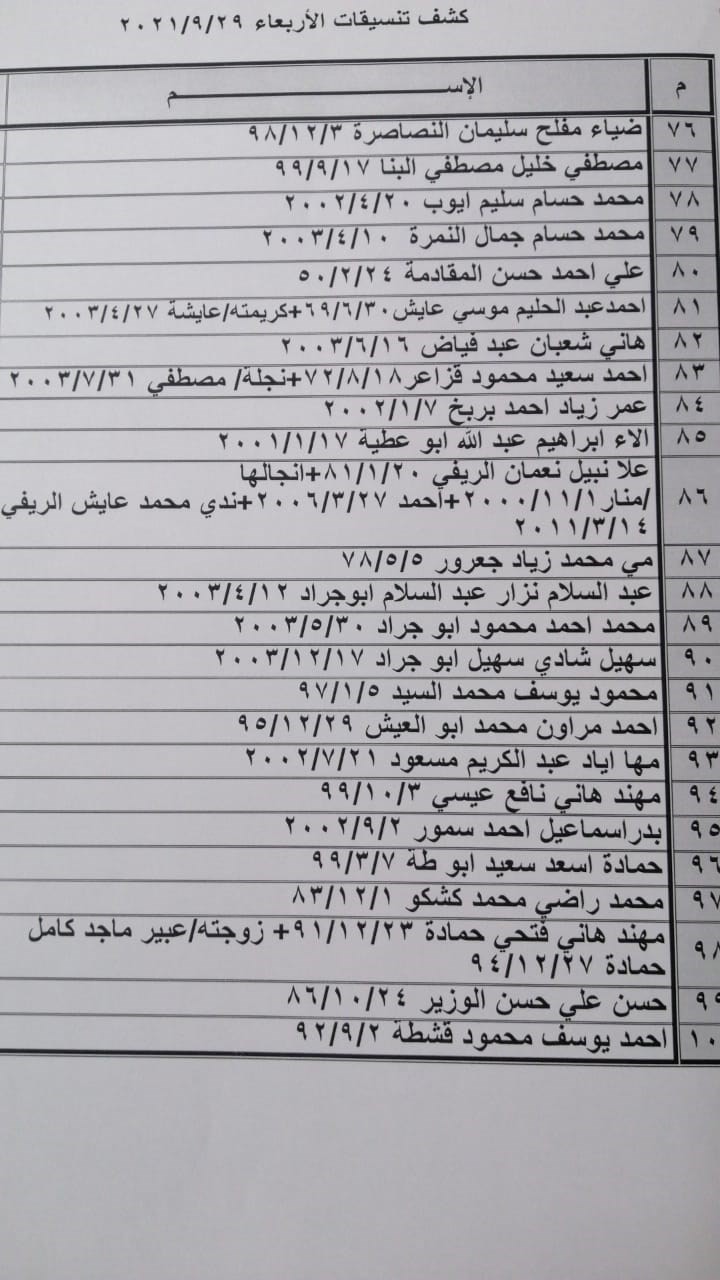 كشف تنسيقات الأربعاء ٢٠٢١/٩/٢٩
م الإســـــــــــــــــــم
٧٦ ضياء مفلح سليمان النصاصرة ٩٨/١٢/٣
٧٧ مصطفي خليل مصطفي البنا ٩٩/٩/١٧
٧٨ محمد حسام سليم ايوب ٢٠٠٢/٤/٢٠
٧٩ محمد حسام جمال النمرة ٢٠٠٣/٤/١٠
٨٠ علي احمد حسن المقادمة ٥٠/٢/٢٤
٨١ احمدعبد الحليم موسي عايش٦٩/٦/٣٠+كريمته/عايشة ٢٠٠٣/٤/٢٧
٨٢ هاني شعبان عبد فياض ٢٠٠٣/٦/١٦
٨٣ احمد سعيد محمود قزاعر٧٢/٨/١٨+نجلة/ مصطفي ٢٠٠٣/٧/٣١
٨٤ عمر زياد احمد بربخ ٢٠٠٢/١/٧
٨٥ الاء ابراهيم عبد الله ابو عطية ٢٠٠١/١/١٧
٨٦ علا نبيل نعمان الريفي ٨١/١/٢٠+انجالها
/منار٢٠٠٠/١١/١+احمد ٢٠٠٦/٣/٢٧+ندي محمد عايش الريفي
٢٠١١/٣/١٤
٨٧ مي محمد زياد جعرور ٧٨/٥/٥
٨٨ عبد السلام نزار عبد السلام ابوجراد ٢٠٠٣/٤/١٢
٨٩ محمد احمد محمود ابو جراد ٢٠٠٣/٥/٣٠
٩٠ سهيل شادي سهيل ابو جراد ٢٠٠٣/١٢/١٧
٩١ محمود يوسف محمد السيد ٩٧/١/٥
٩٢ احمد مراون محمد ابو العيش ٩٥/١٢/٢٩
٩٣ مها اياد عبد الكريم مسعود ٢٠٠٢/٧/٢١
٩٤ مهند هاني نافع عيسي ٩٩/١٠/٣
٩٥ بدراسماعيل احمد سمور ٢٠٠٢/٩/٢
٩٦ حمادة اسعد سعيد ابو طة ٩٩/٣/٧
٩٧ محمد راضي محمد كشكو ٨٣/١٢/١
٩٨ مهند هاني فتحي حمادة ٩١/١٢/٢٣+ زوجته/عبير ماجد كامل
حمادة ٩٤/١٢/٢٧
٩٩ حسن علي حسن الوزير ٨٦/١٠/٢٤
١٠ احمد يوسف محمود قشطة ٩٢/٩/٢